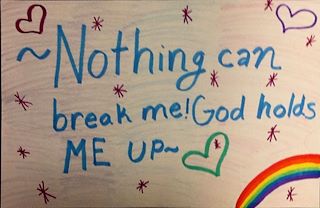 ~Nothing can
break me! God holds
ME UP~